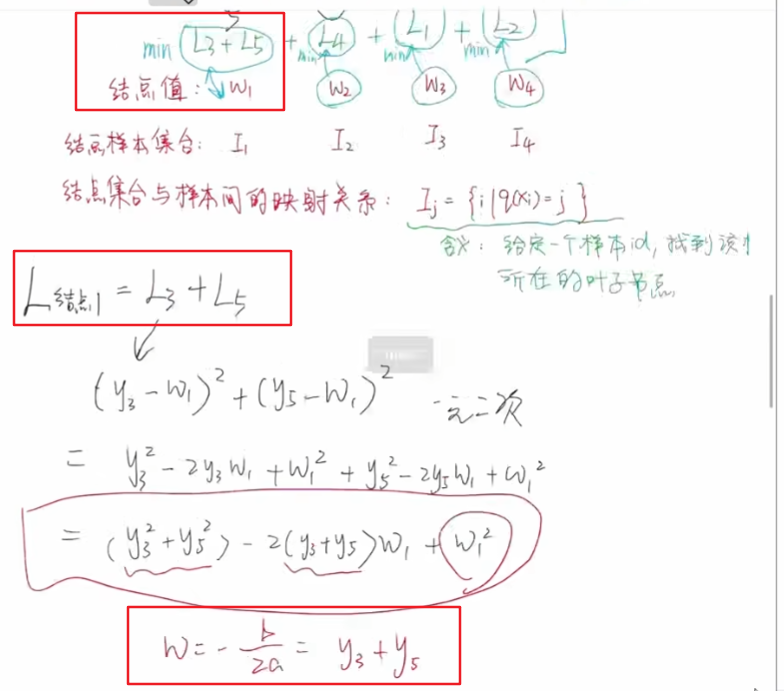 min L3+L5 + min L4 + min L1 + min L2
结点值: W1 W2 W3 W4
结点样本集合: I1 I2 I3 I4
结点集合与样本间的映射关系: Ij = {i|q(xi)=j}
含义: 给定一个样本id, 找到该
所在的叶子节点
L结点1 = L3 + L5
(y3-W1)² + (y5-W1)² 一元二次
= y3² - 2y3W1 + W1² + y5² - 2y5W1 + W1²
= (y3²+y5²) - 2(y3+y5)W1 + W1²
W = -b/2a = y3+y5